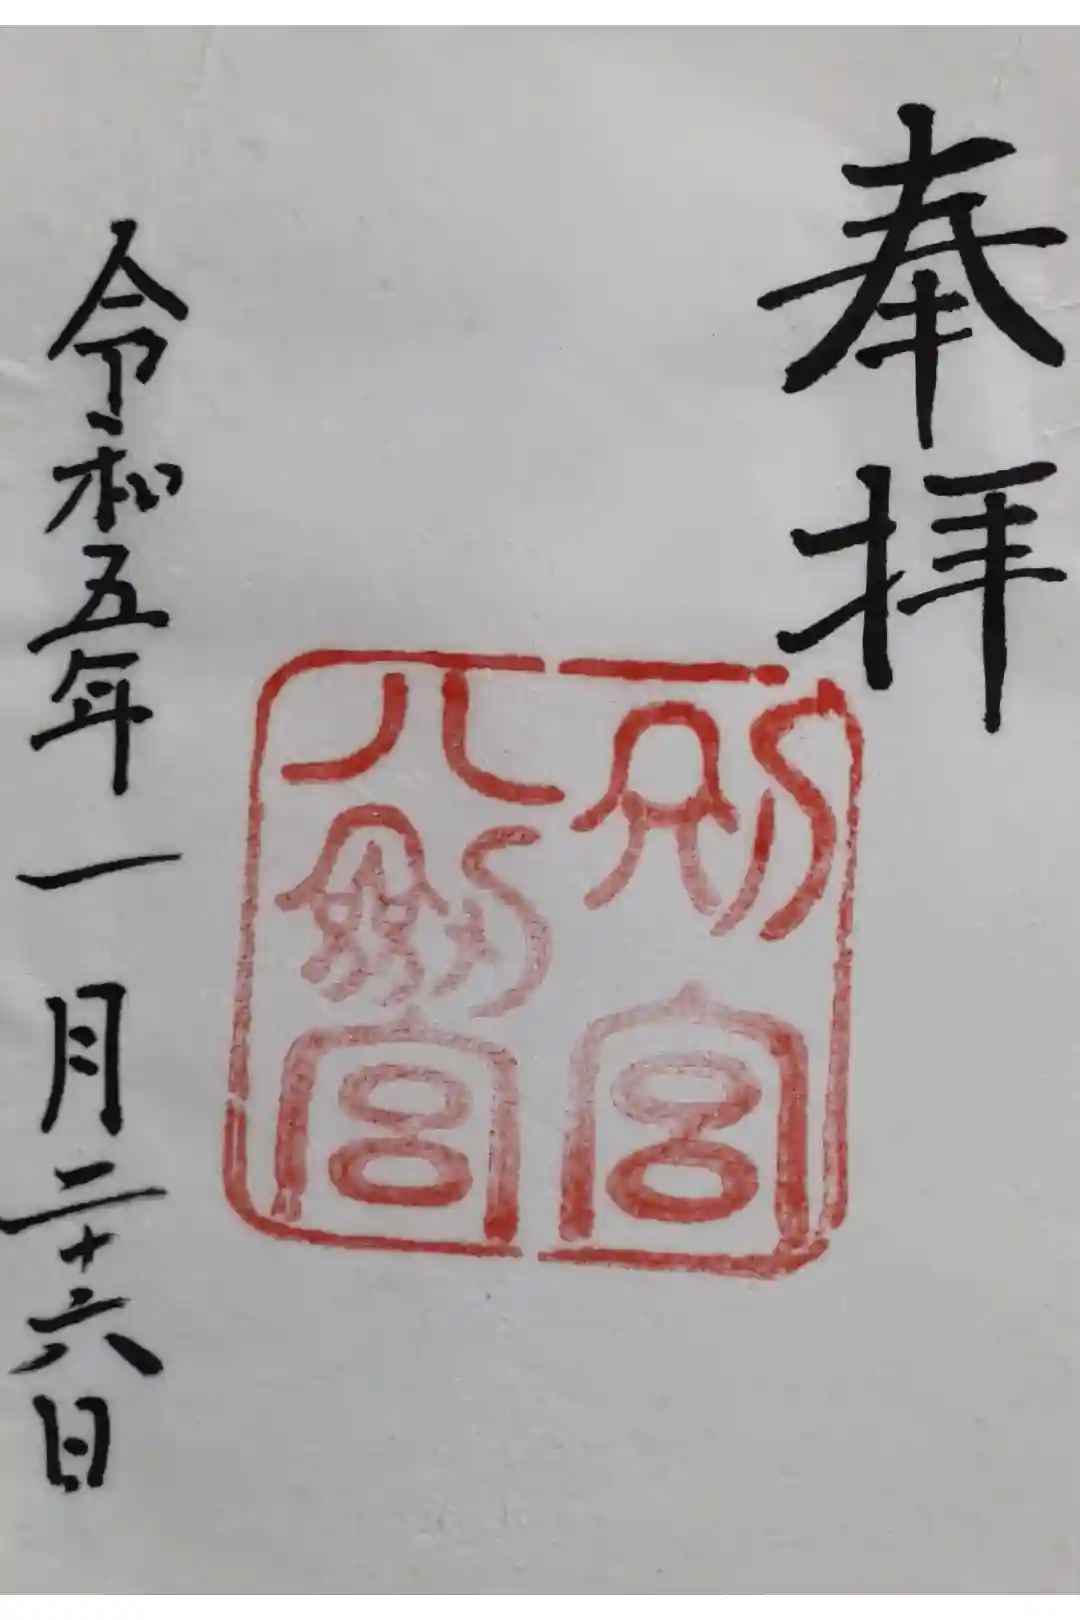 奉拝
別宮
八劔宮
令和五年一月二十六日